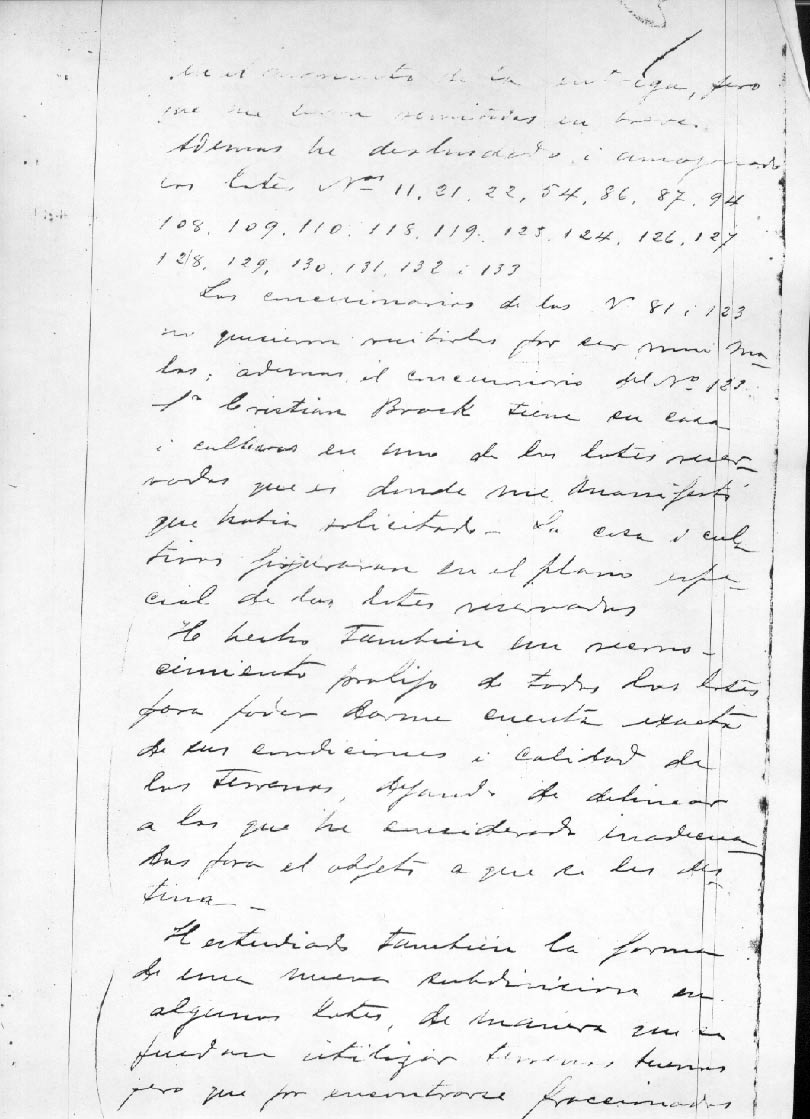 en el momento de la entrega, pero
que me seran remitidas en breve.
Ademas he deslindado i amojonado
los lotes Nos 11, 21, 22, 54, 86, 87, 94
108, 109, 110, 118, 119, 123, 124, 126, 127
128, 129, 130, 131, 132 i 133
Los concesionarios de los N. 81 i 123
no quisieron recibirlos por ser mui ma-
los; ademas, el concesionario del No 123
Sr Cristian Brock tiene su casa
i cultivos en uno de los lotes reser-
vados que es donde me manifestó
que habia solicitado - La casa i cul-
tivos figuraran en el plano espe-
cial de los lotes reservados
He hecho tambien un recono-
cimiento prolijo de todos los lotes
para poder darme cuenta exacta
de sus condiciones i calidad de
los terrenos, dejando de delinear
a los que he considerado inadecua-
dos para el objeto a que se les des-
tina -
He estudiado tambien la forma
de una nueva subdivision en
algunos lotes, de manera que se
puedan utilizar terrenos buenos
pero que por encontrarse fraccionados